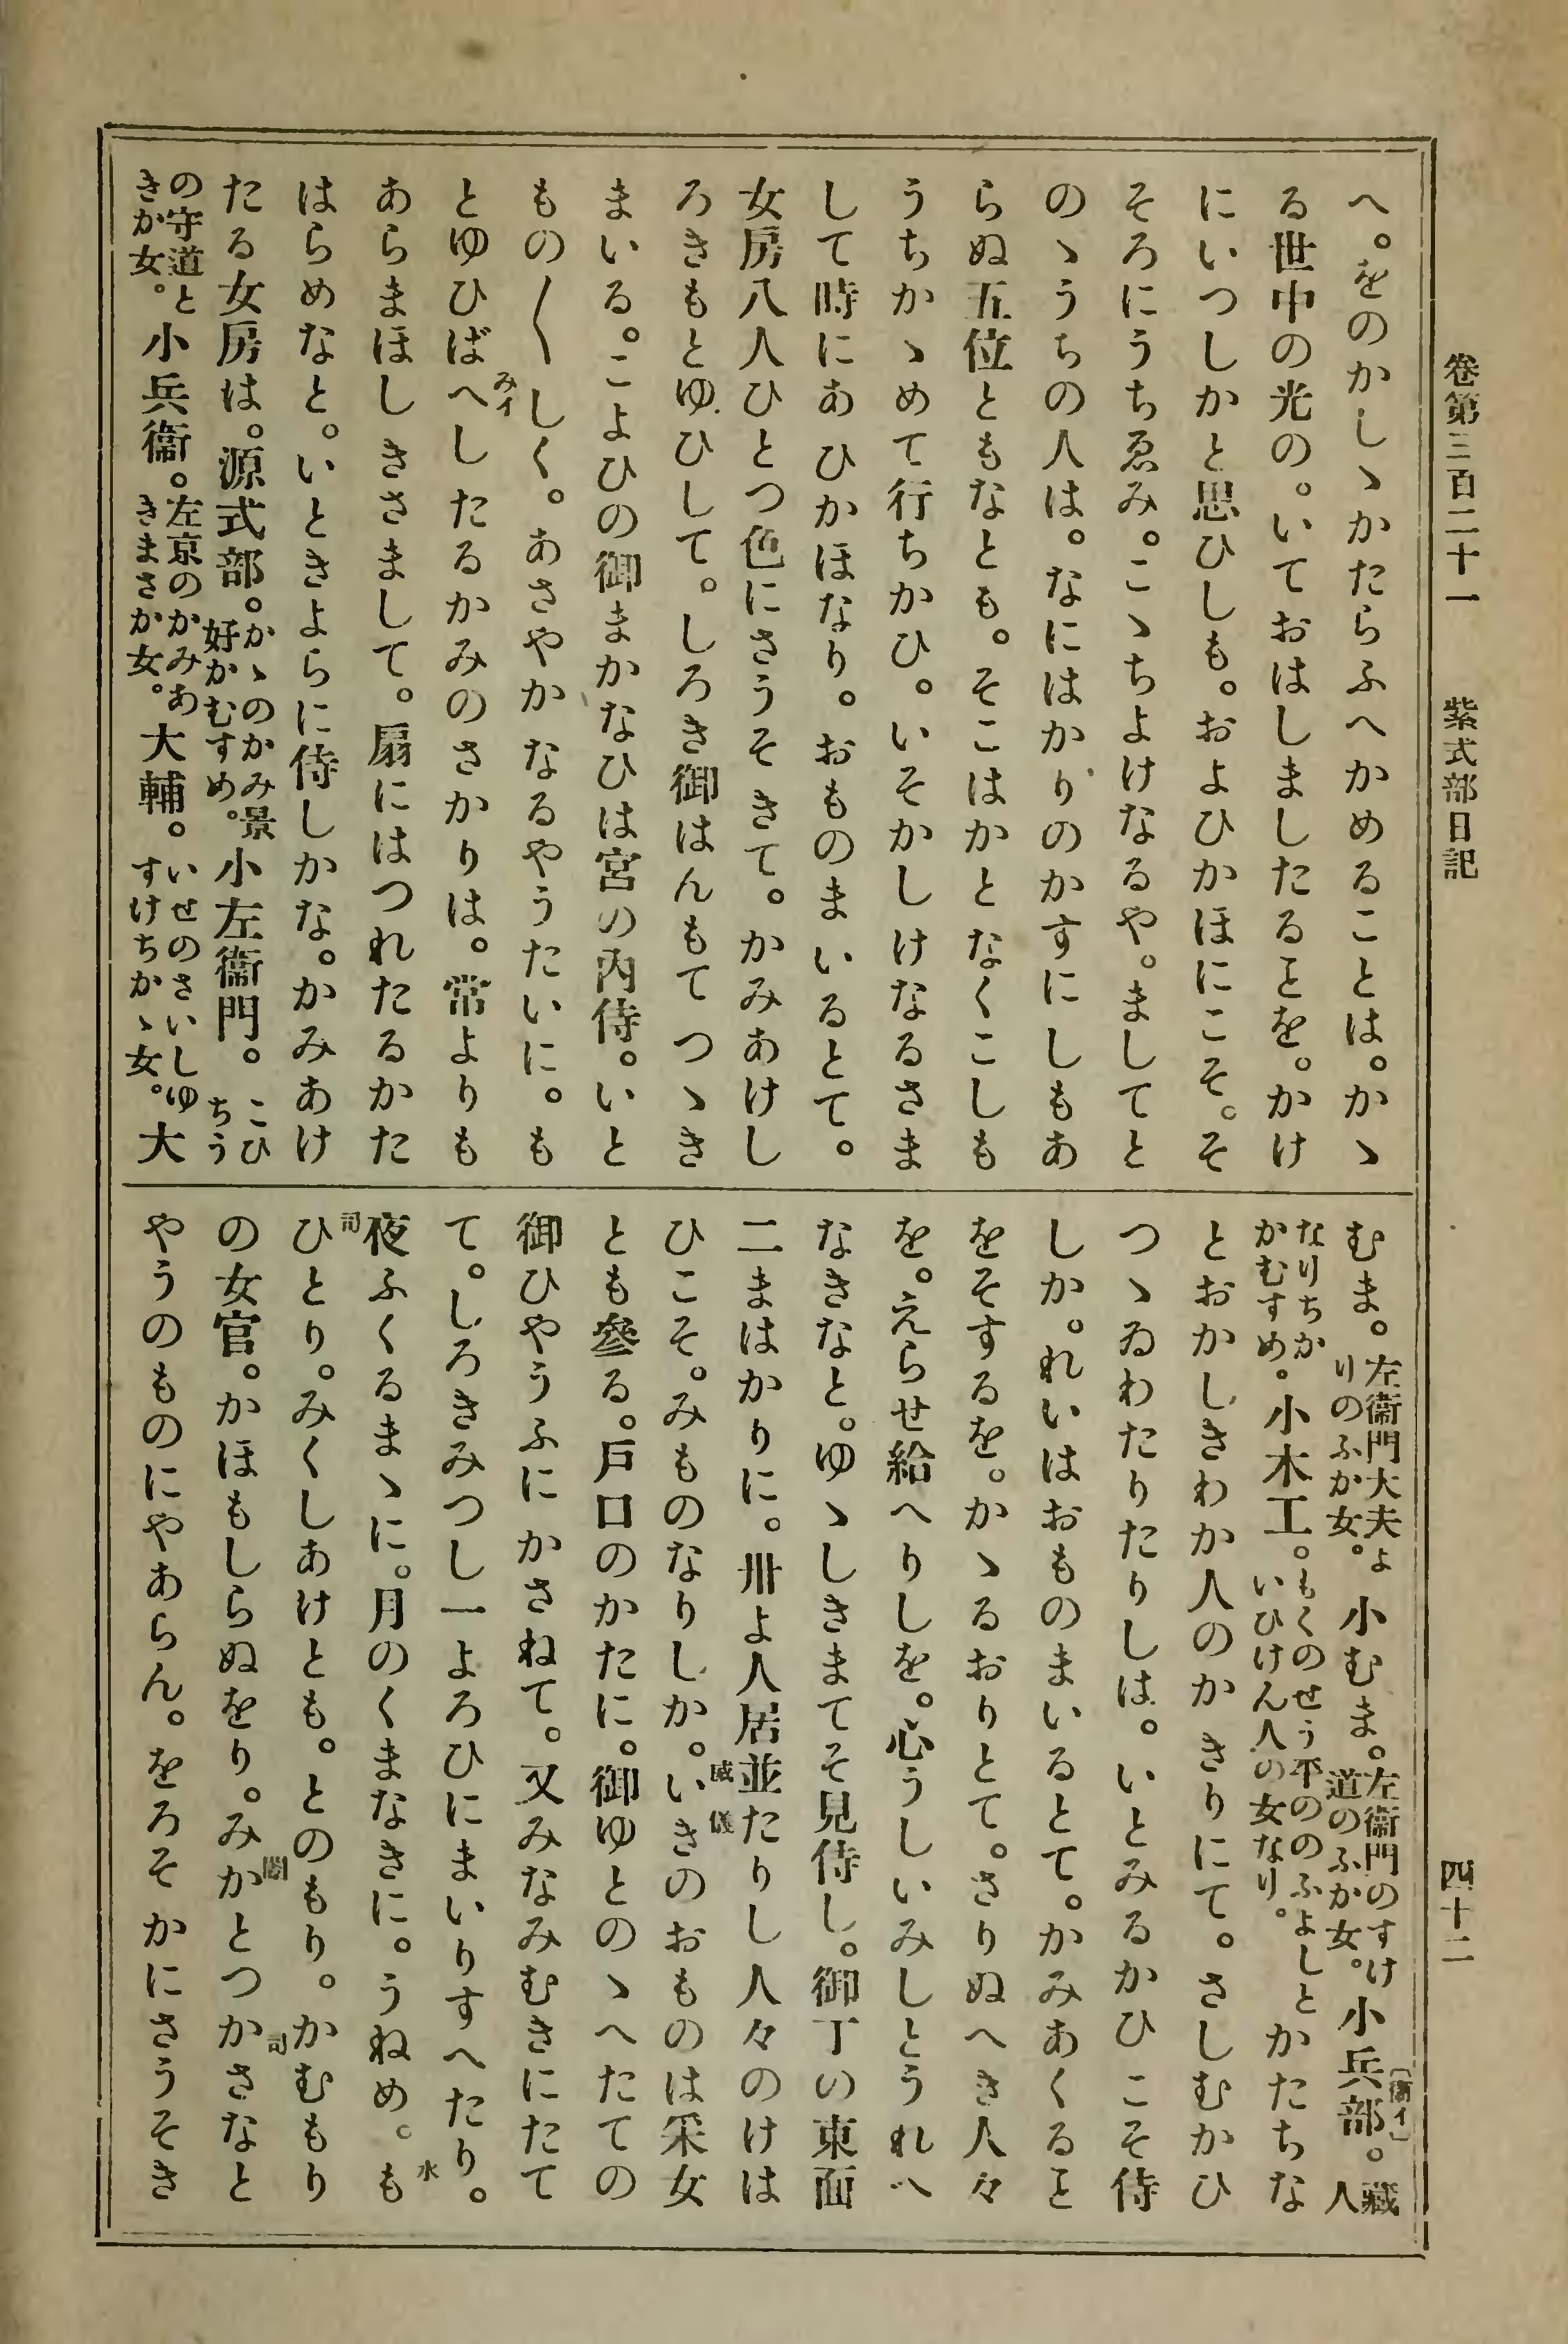 卷第三百二十一　紫式部日記　四十二
へ。をのかしゝかたらふへかめることは。かゝ
る世中の光の。いておはしましたるヿを。かけ
にいつしかと思ひしも。およひかほにこそ。そ
そろにうちゑみ。こゝちよけなるや。ましてと
のゝうちの人は。なにはかりのかすにしもあ
らぬ五位ともなとも。そこはかとなくこしも
うちかゝめて行ちかひ。いそかしけなるさま
して時にあひかほなり。おものまいるとて。
女房八人ひとつ色にさうそきて。かみあけし
ろきもとゆひして。しろき御はんもてつゝき
まいる。こよひの御まかなひは宮の内侍。いと
もの〳〵しく。あさやかなるやうたいに。も
とゆひばへ[みイ]したるかみのさかりは。常よりも
あらまほしきさまして。扇にはつれたるかた
はらめなと。いときよらに侍しかな。かみあけ
たる女房は。源式部。かゝのかみ景好かむすめ。小左衞門。こひちう
の守道ときか女。小兵衞。左京のかみあきまさか女。大輔。いせのさいしゆすけちかゝ女。大
むま。左衞門大夫よりのふか女。小むま。左衞門のすけ道のふか女。小兵部[〔衞イ〕]。藏人
なりちかかむすめ。小木工。もくのせう平ののふよしといひけん人の女なり。かたちな
とおかしきわか人のかきりにて。さしむかひ
つゝゐわたりたりしは。いとみるかひこそ侍
しか。れいはおものまいるとて。かみあくるヿ
をそするを。かゝるおりとて。さりぬへき人々
を。えらせ給へりしを。心うしいみしとうれへ
なきなと。ゆゝしきまてそ見侍し。御丁の東面
二まはかりに。卅よ人居並たりし人々のけは
ひこそ。みものなりしか。いき[威儀]のおものは采女
とも參る。戸口のかたに。御ゆとのゝへたての
御ひやうふにかさねて。又みなみむきにたて
て。しろきみつし一よろひにまいりすへたり。
夜ふくるまゝに。月のくまなきに。うねめ。も[水]
ひとり[司]。みくしあけとも。とのもり。かむもり
の女官。かほもしらぬをり。みかとつかさ[闈司]なと
やうのものにやあらん。をろそかにさうそき